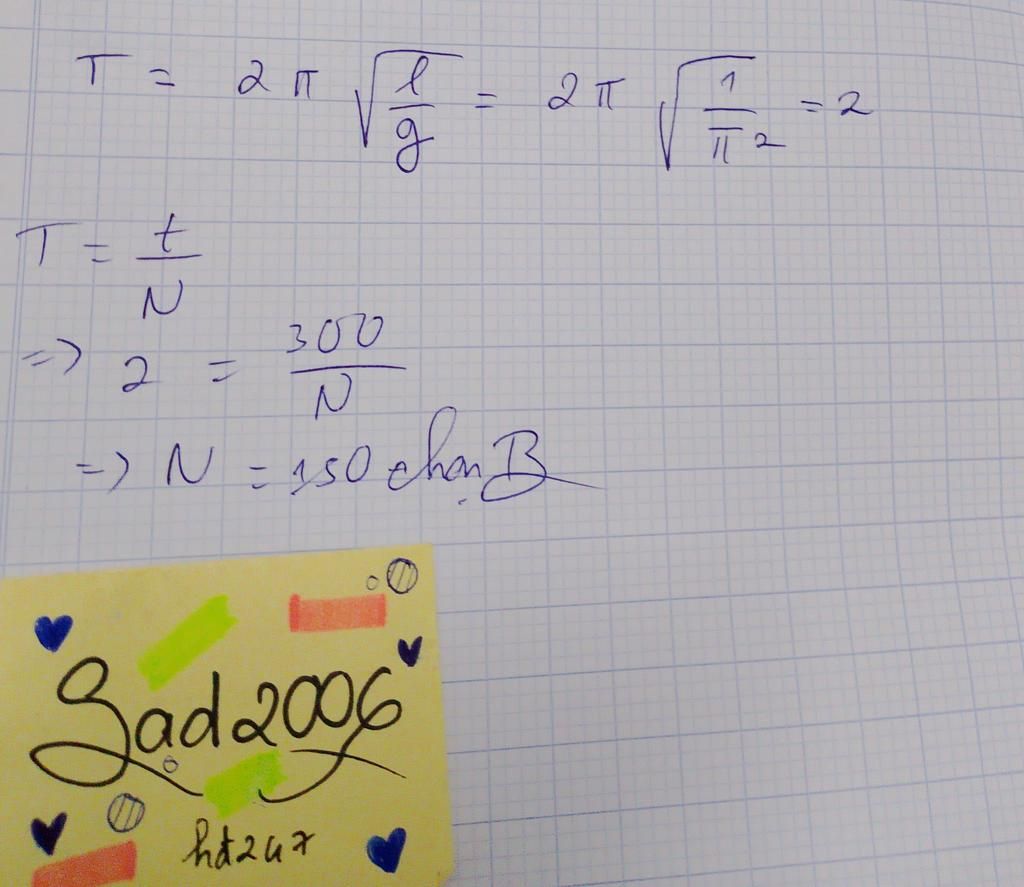 T = 2π √(l/g) = 2π √(1/π²) = 2
T = t/N
=> 2 = 300/N
=> N = 150 chọn B
Sad2006
hd247